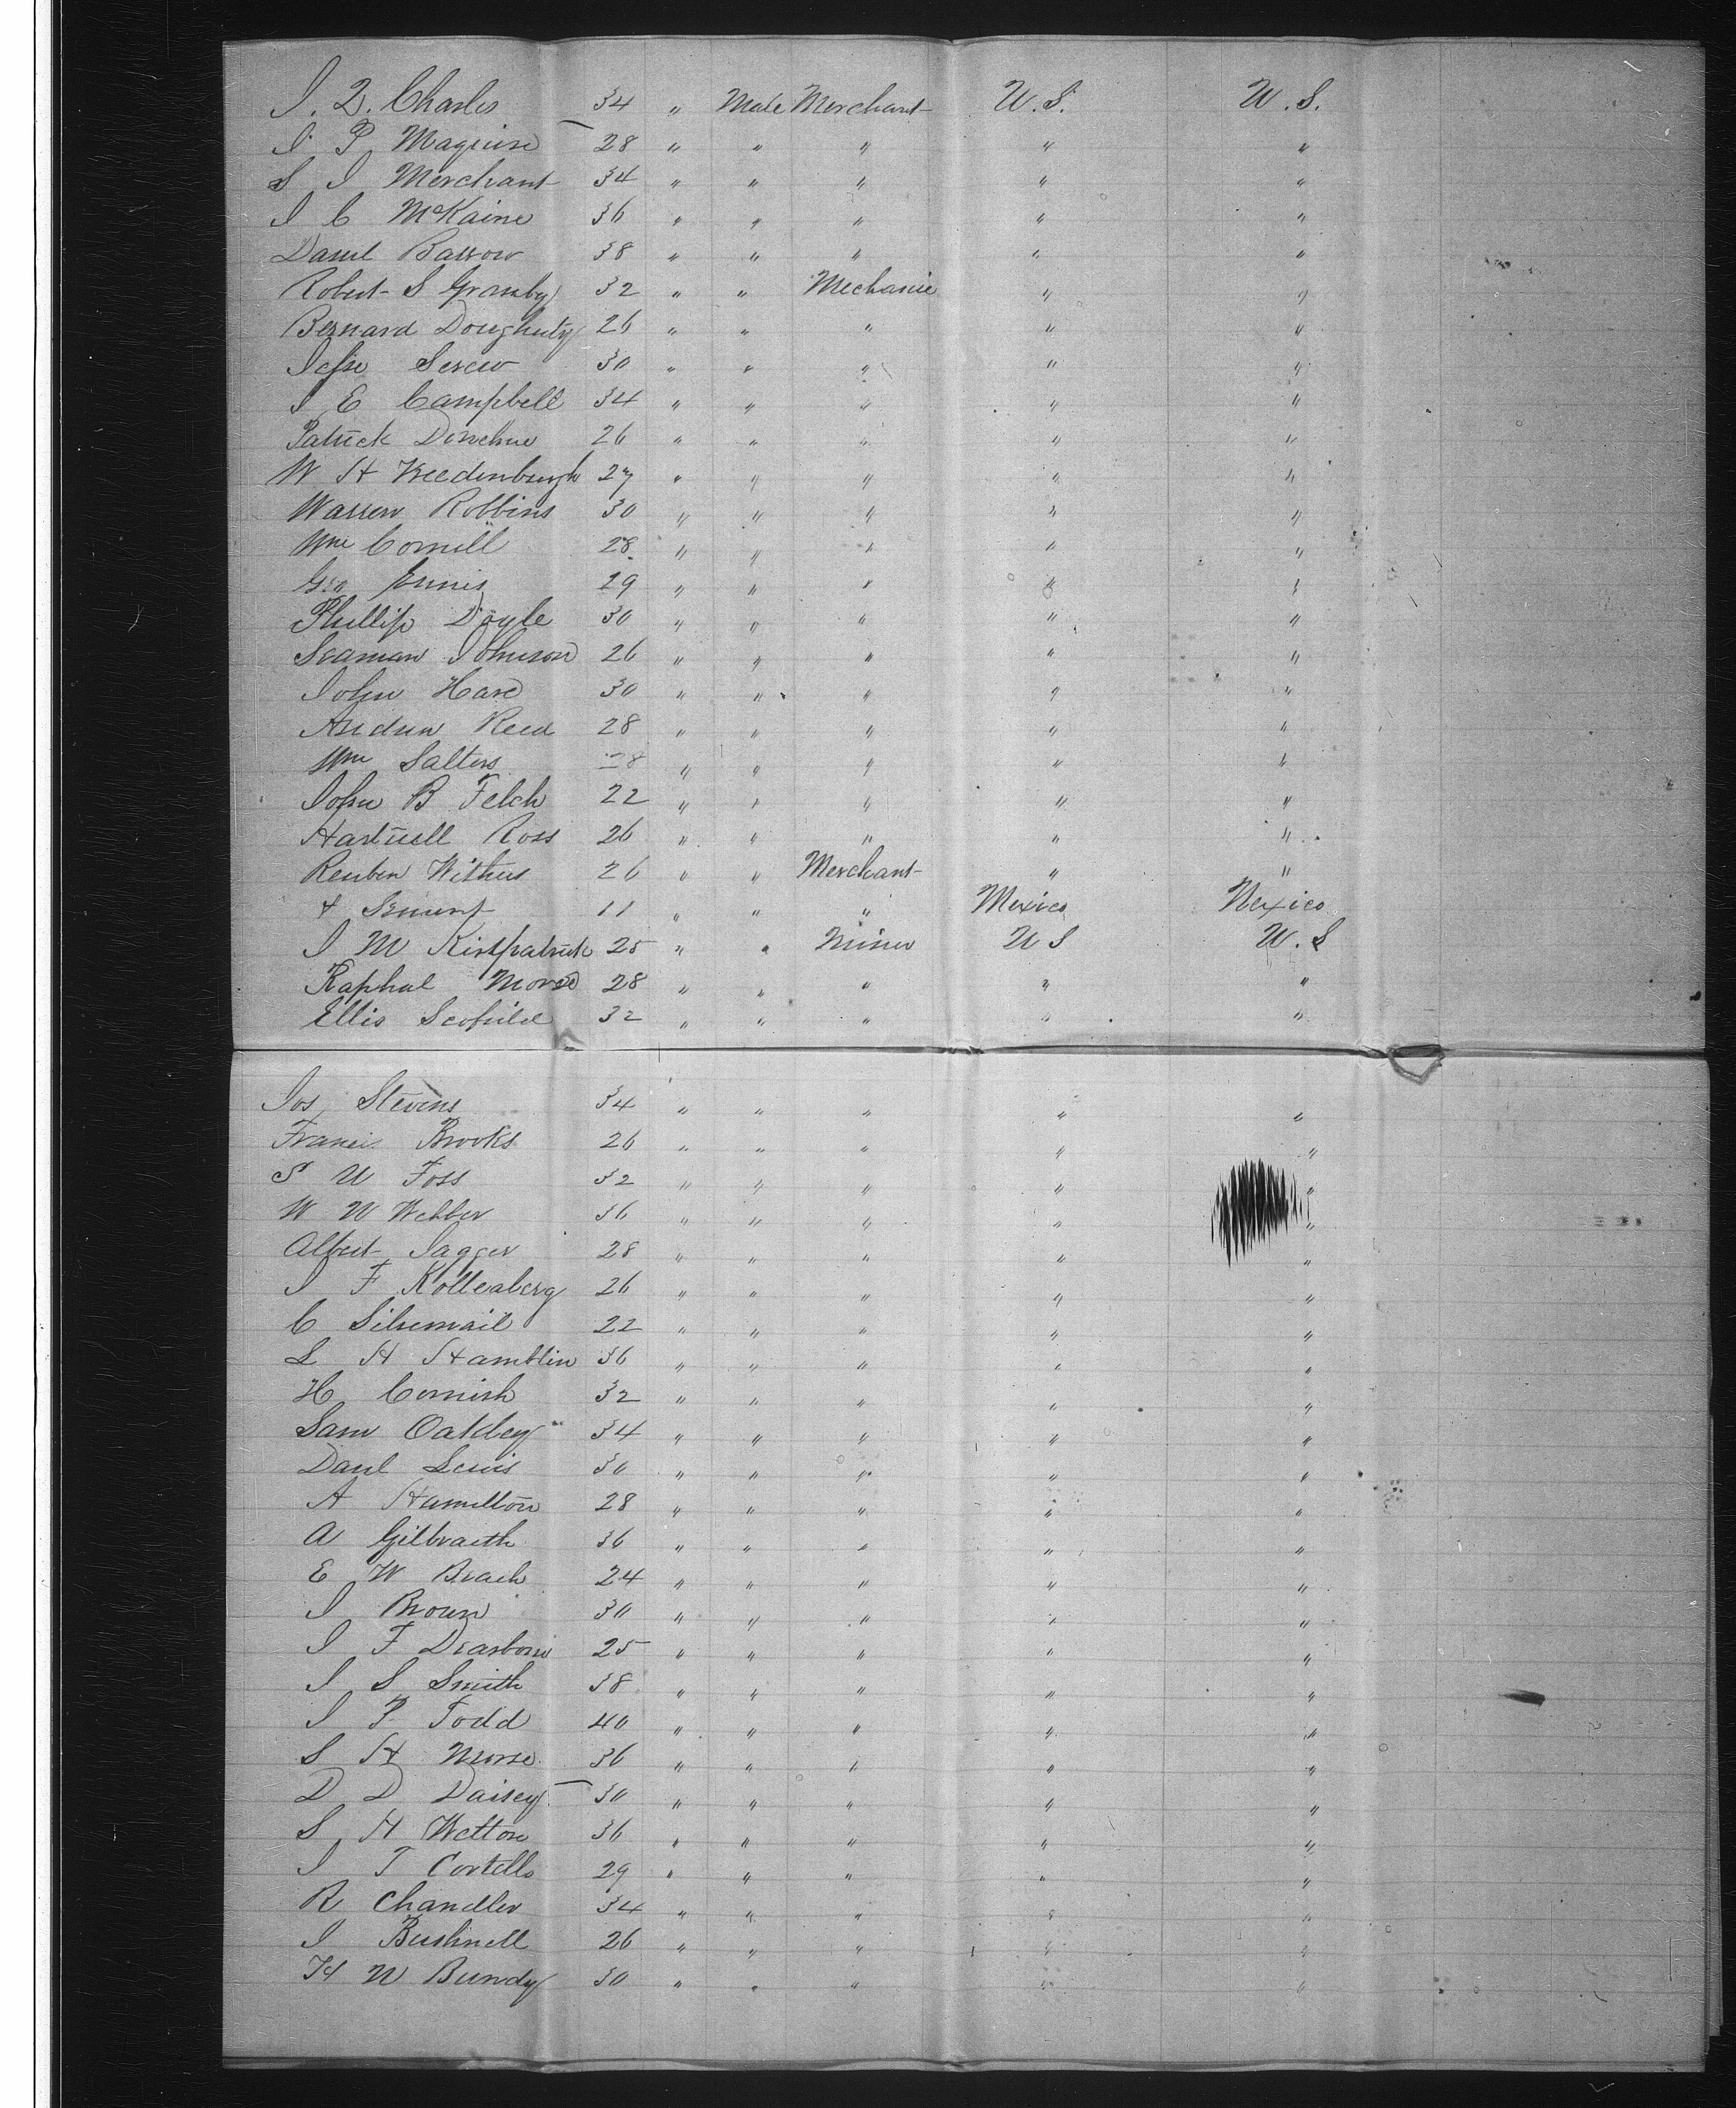 J. Q. Charles 34 " Male Merchant U.S. U.S.
J. P. Maguire 28 " " " " "
S J Merchant 34 " " " " "
J C McKaine 36 " " " " "
Danl Barrow 38 " " " " "
Robert S Gransby 32 " " Mechanic " "
Bernard Doughuty 26 " " " " "
Jesse 30 " " " " "
J E Campbell 34 " " " " "
Patrick Donehue 26 " " " " "
W H Vreedenburgh 27 " " " " "
Warren Robbins 30 " " " " "
Wm Cornell 28 " " " " "
Geo Ennis 29 " " " " "
Phillip Doyle 30 " " " " "
Seaman Johnson 26 " " " " "
John Hard 30 " " " " "
Andrew Reed 28 " " " " "
Wm Salters 28 " " " " "
John B Felch 22 " " " " "
Hartwell Ross 26 " " " " "
Reuben Withus 26 " " Merchant " "
11 " " " Mexico Mexico
J M Kirkpatrick 25 " " Miner U S U. S
Raphal Morse 28 " " " " "
Ellis Scofield 32 " " " " "
Jos Stevens 34 " " " " "
Francis Brooks 26 " " " " "
S W Foss 32 " " " " "
W W Webber 36 " " " " "
Albert Jagger 28 " " " " "
J F Kollenberg 26 " " " " "
C 22 " " " " "
L H Hamblin 36 " " " " "
H Cornish 32 " " " " "
Sam Oakley 34 " " " " "
Danl Lewis 30 " " " " "
A Hamilton 28 " " " " "
A Gilbraith 36 " " " " "
E W Beach 24 " " " " "
J Brown 30 " " " " "
J F Dearborn 25 " " " " "
J S Smith 38 " " " " "
J P Todd 40 " " " " "
S H Morse 36 " " " " "
D D Daisey 30 " " " " "
S H Welton 36 " " " " "
J T Cortells 29 " " " " "
R Chandler 34 " " " " "
J Bushnell 26 " " " " "
H W Bundy 30 " " " " "